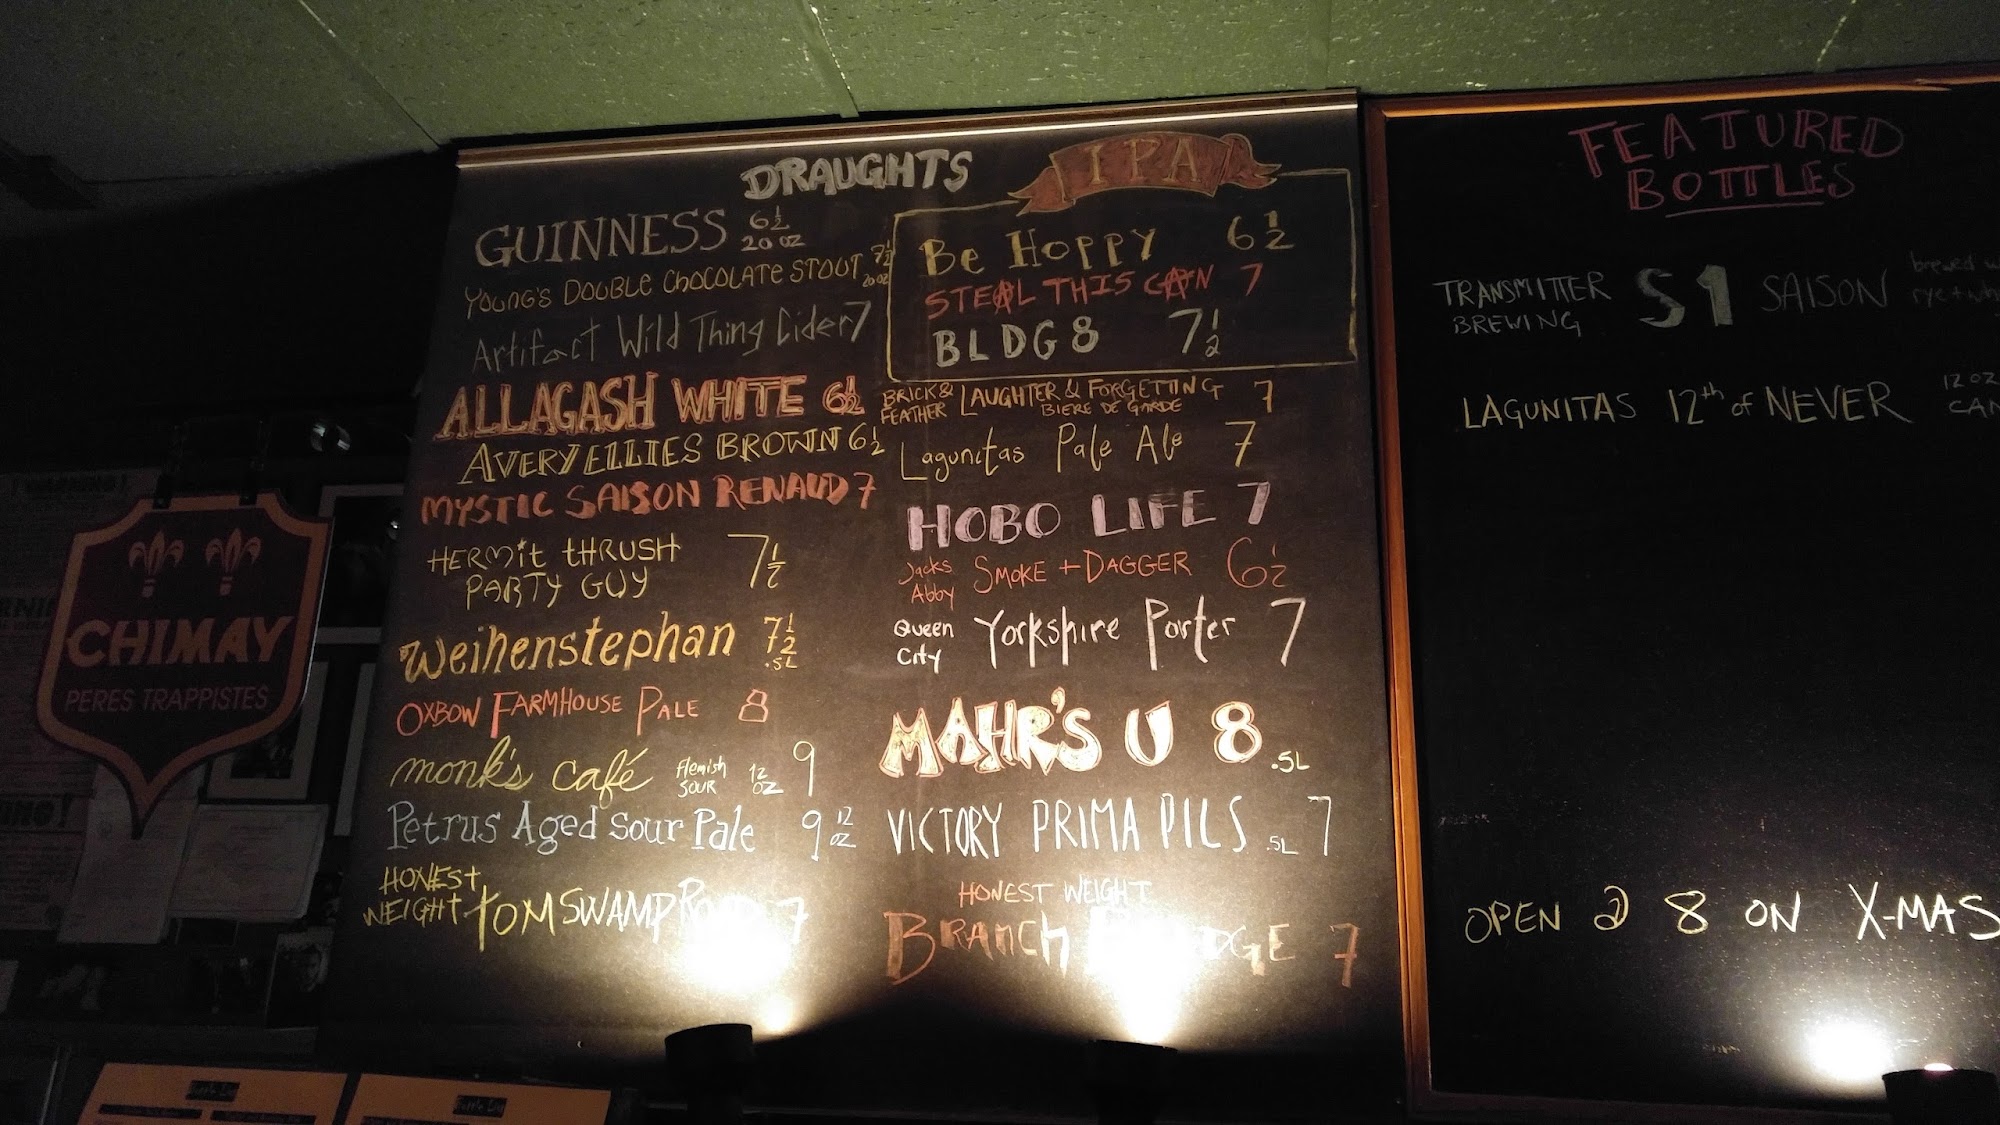 DRAUGHTS
GUINNESS 6½ 20 OZ
YOUNG'S DOUBLE CHOCOLATE STOUT 7½ 20 OZ
Artifact Wild Thing Cider 7
ALLAGASH WHITE 6½
AVERY ELLIES BROWN 6½
MYSTIC SAISON RENAUD 7
HERMIT THRUSH 7½
PARTY GUY
Weihenstephan 7½ .5L
OXBOW FARMHOUSE PALE 8
monk's café Flemish SOUR 12 OZ 9
Petrus Aged Sour Pale 9 12 OZ
HONEST WEIGHT TOM SWAMP 7
IPA
Be Hoppy 6½
STEAL THIS CAN 7
BLDG 8 7½
BRICK & FEATHER LAUGHTER & FORGETTING 7
BIERE DE GARDE
Lagunitas Pale Ale 7
HOBO LIFE 7
Jacks Abby SMOKE + DAGGER 6½
Queen City Yorkshire Porter 7
MAHR'S U 8 .5L
VICTORY PRIMA PILS .5L 7
HONEST WEIGHT
BRANCH 7
FEATURED
BOTTLES
TRANSMITTER BREWING S1 SAISON brewed
LAGUNITAS 12th of NEVER 12 OZ
OPEN @ 8 ON X-MAS
CHIMAY
PERES TRAPPISTES